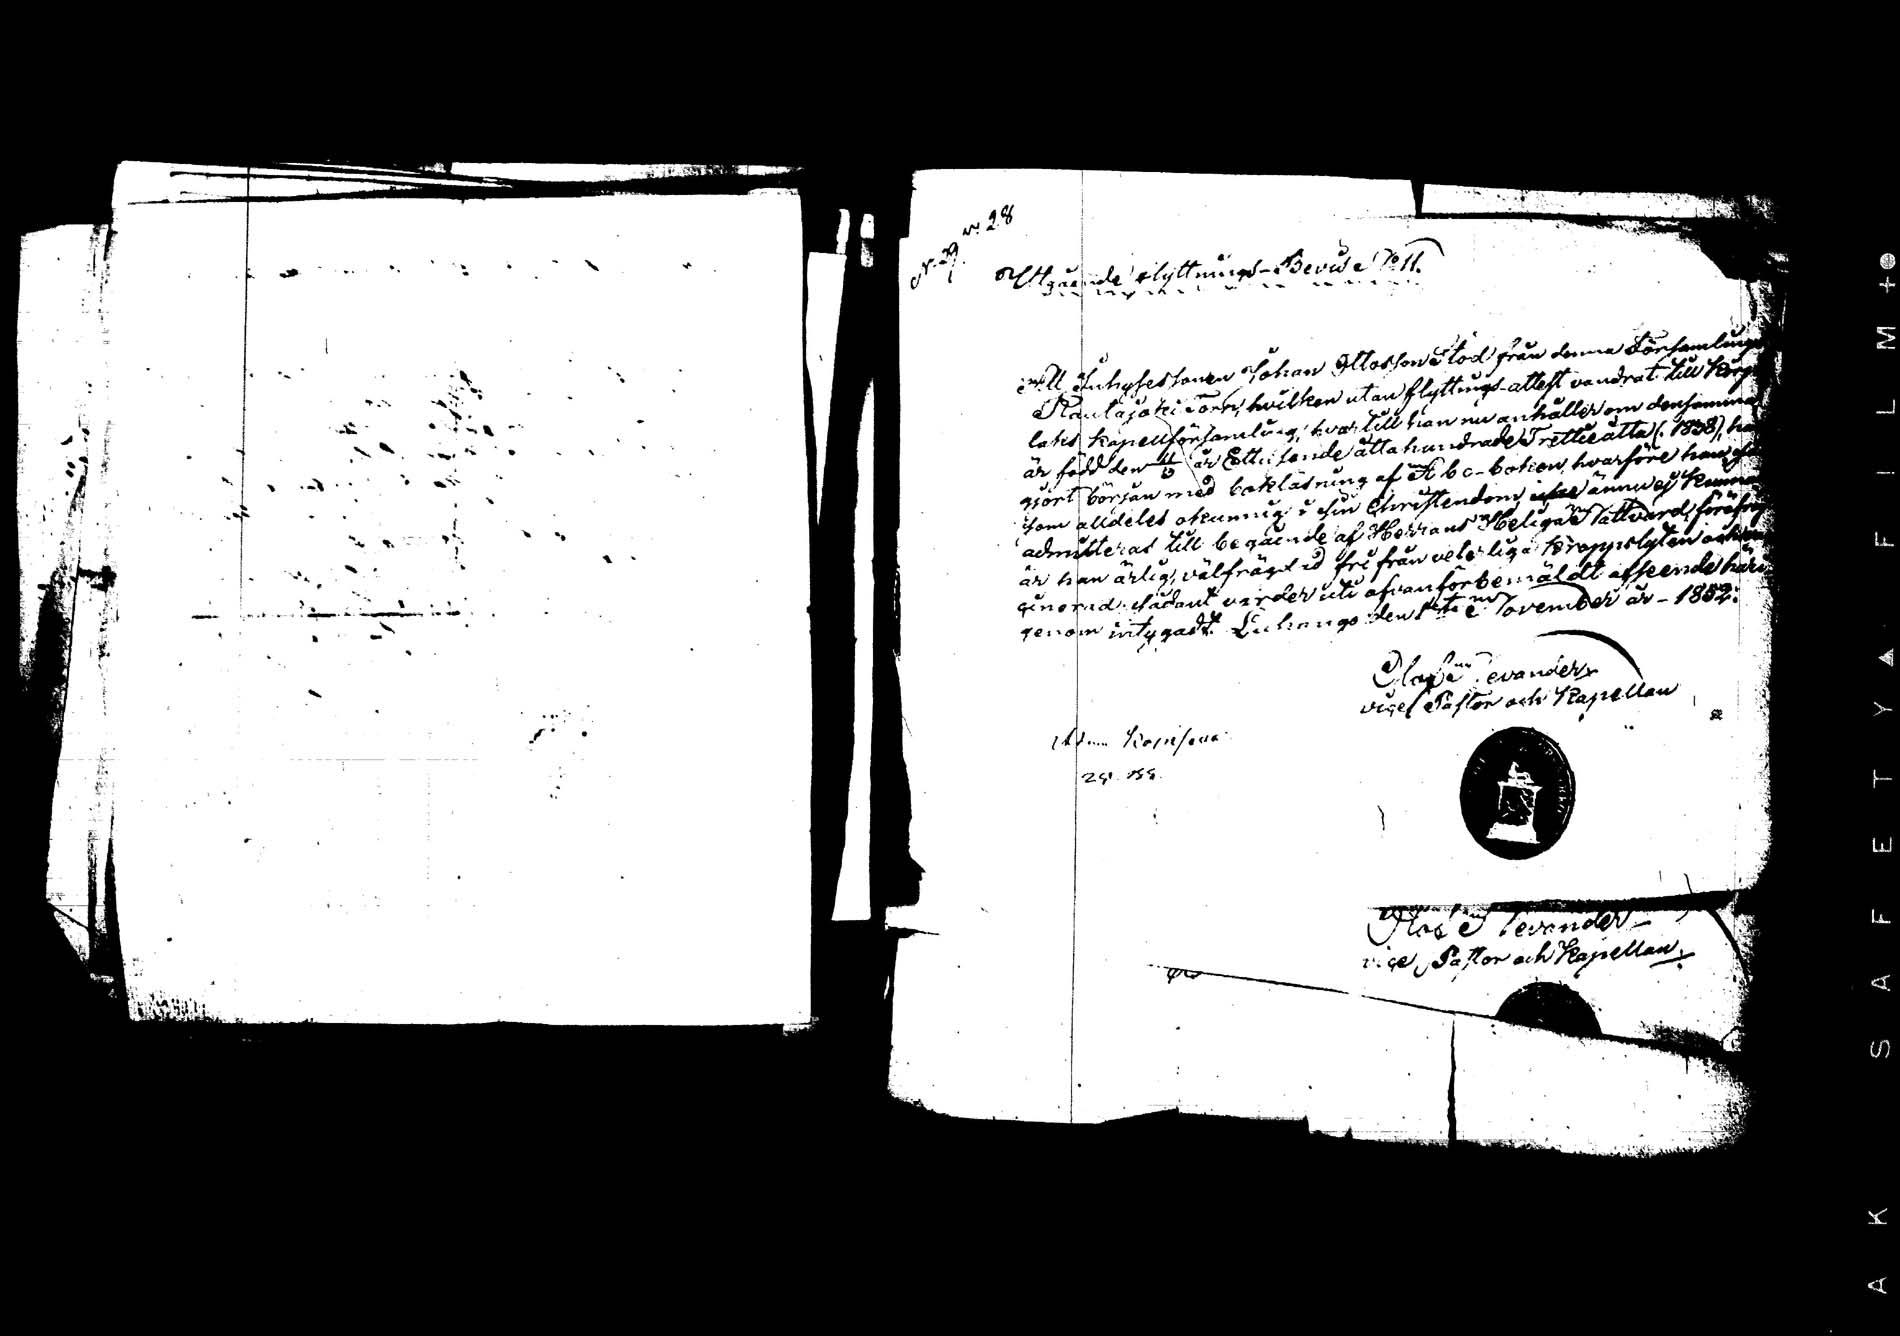 N. 29. N. 28
Utgående Flyttnings-Bevis N:o 11.
Att Inhysessonen Johan Ottosson Stod från denna Församlings
Rautajoki Torp, hvilken utan flyttnings-attest vandrat till Korpi-
laks Kapellförsamling, hvartill han nu anhåller om densamma,
är född den år Ettusende åttahundrade Trettioåtta (: 1838), ha
gjort början med bokläsning af Abc-boken, hvarföre han
som alldeles okunnig i sin Christendom ännu ej kunna
admitteras till begående af Herrans Heliga Nattvard, föröfrigt
är han ärlig, välfrägdad fri från veterliga Kroppslyten och
sådant varder uti ofvanförbemäldt afseende häri-
genom intygadt. Luhango den November år - 1852:
Olof Nevander
vice Pastor och Kapellan
Olof Nevander
vice Pastor och Kapellan
SAFETY FILM